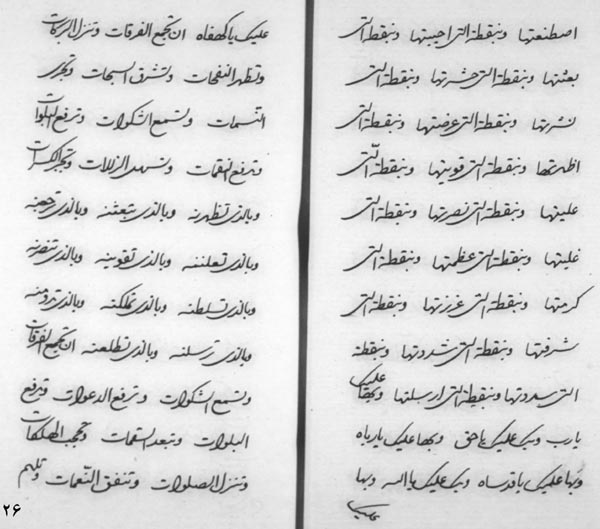 اصطنعتها وبنقطة التی اجبتها وبنقطة التی
بعثتها وبنقطة التی حشرتها وبنقطة التی
نشرتها وبنقطة التی عرضتها وبنقطة التی
اظهرتها وبنقطة التی قویتها وبنقطة الّتی
علیتها وبنقطة التی نصرتها وبنقطة التی
غلبتها وبنقطة التی عظمتها وبنقطة التی
کرمتها وبنقطة التی عززتها وبنقطة التی
شرفتها وبنقطة التی شددتها وبنقطة
التی سددتها وبنقطة التی ارسلتها وبها علیک
یارب وبک علیک یاحق وبها علیک یارباه
وبها علیک یاقدساه وبک علیک یاالله وبها
علیک
علیک یاکهفاه ان تجمع الفرقات وتنزل البرکات
وتظهر النفحات وتشرق السبحات وتجری
النسمات وتسمع الشکوات وترفع البلوات
وترفع النقمات وتجبر الکسرات
وبالذی تظهرنه وبالذی تبعثنه وبالذی ترجعنه
وبالذی تعلننه وبالذی تقوینه وبالذی تنصرنه
وبالذی تسلطنه وبالذی تملکنه وبالذی
وبالذی ترسلنه وبالذی تطلعنه ان تجمع الفرقات
وتسمع الشکوات وترفع الدعوات وترفع
البلوات وتبعد النقمات وتحجب الهلکات
وتنزل الصلوات وتنفق النّعمات وتلهم
۲۶